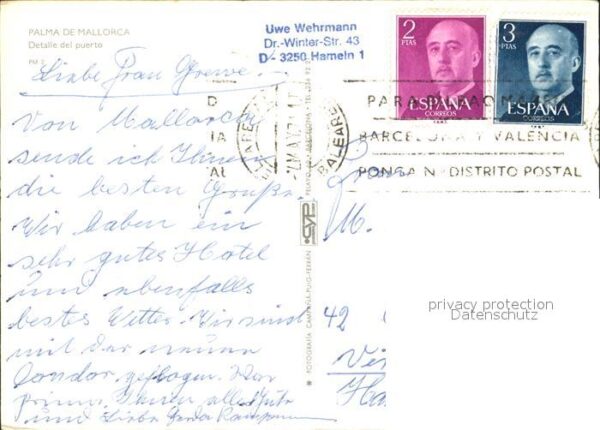 PALMA DE MALLORCA
Detalle del puerto
PM
Uwe Wehrmann
Dr.-Winter-Str. 43
D - 3250 Hameln 1
2
PTAS
ESPAÑA
CORREOS
3
PTAS
ESPAÑA
CORREOS
BALEARES
PARA
BARCELONA Y VALENCIA
PONGA Nº DISTRITO POSTAL
Liebe Frau Grewe
Von Mallorca
sende ich Ihnen
die besten Grüße
Wir haben ein
sehr gutes Hotel
und ebenfalls
bestes Wetter. Wir sind
mit der
Condor geflogen.
Ihnen alles Gute
und Liebe
M.
42
FOTOGRAFIA CAMPAÑÁ-PUIG-FERRAN
privacy protection
Datenschutz